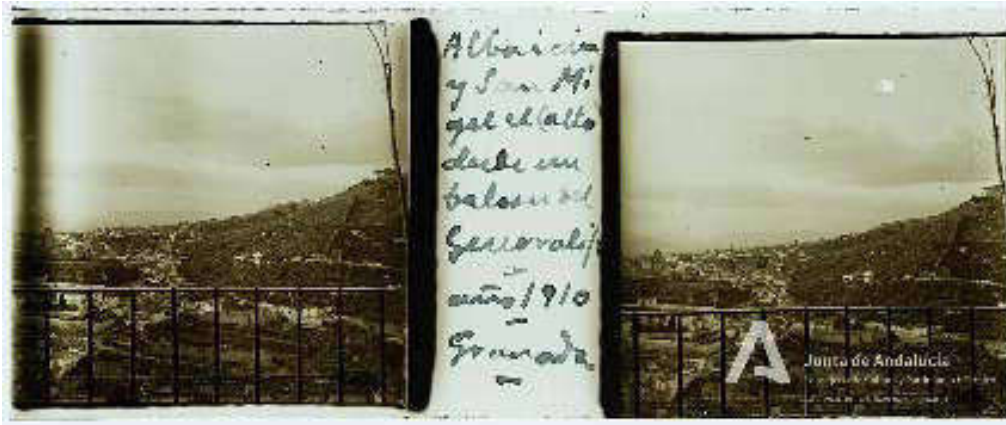 Albaicin
y San Mi
guel el alto
desde un
balcon del
Generalife
año 1910
Granada
Junta de Andalucía